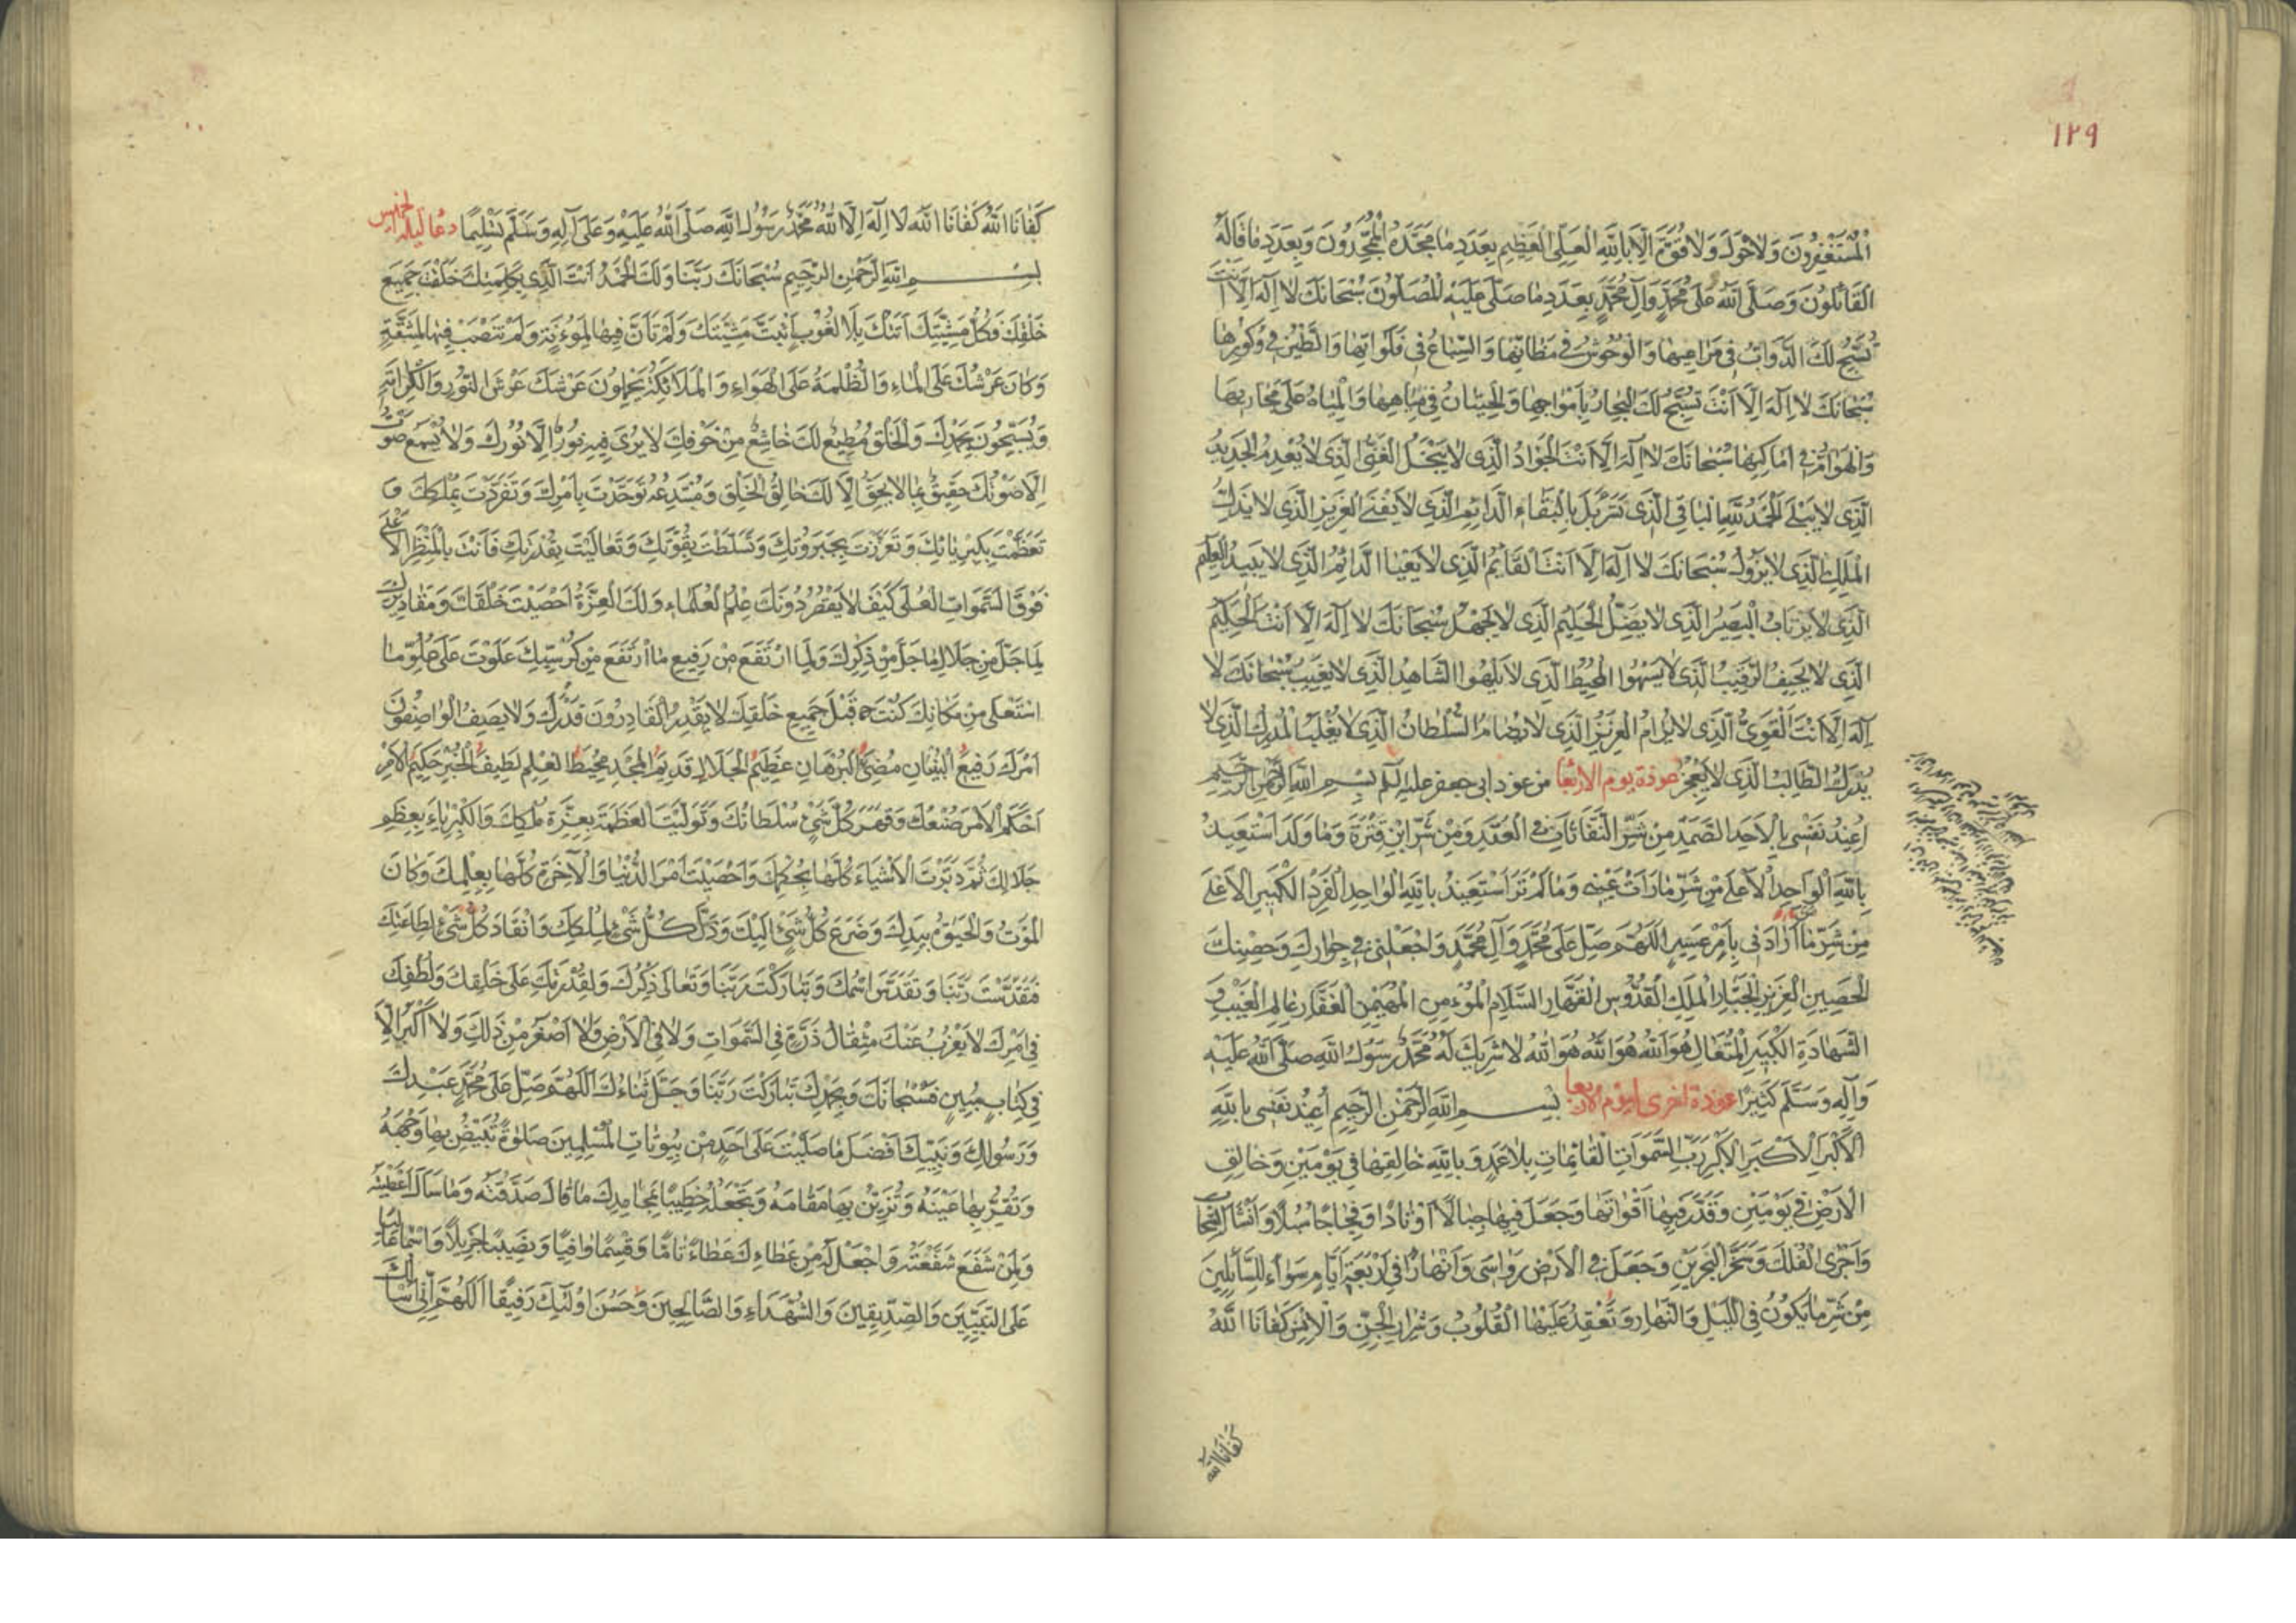 ١٢٩
الْمُسْتَغْفِرُونَ وَلَا حَوْلَ وَلَا قُوَّةَ اِلَّا بِاللّٰهِ الْعَلِىِّ الْعَظِيمِ بِعَدَدِ مَا مَجَّدَهُ الْمُمَجِّدُونَ وَبِعَدَدِ مَا قَالَهُ
الْقَائِلُونَ وَصَلَّى اللّٰهُ عَلَى مُحَمَّدٍ وَآلِ مُحَمَّدٍ بِعَدَدِ مَا صَلَّى عَلَيْهِ الْمُصَلُّونَ سُبْحَانَكَ لَا اِلٰهَ اِلَّا اَنْتَ
تُسَبِّحُ لَكَ الدَّوَابُّ فِى مَرَاعِيهَا وَالْوُحُوشُ فِى مَظَانِّهَا وَالسِّبَاعُ فِى فَلَوَاتِهَا وَالطَّيْرُ فِى وُكُورِهَا
سُبْحَانَكَ لَا اِلٰهَ اِلَّا اَنْتَ تُسَبِّحُ لَكَ الْبِحَارُ بِاَمْوَاجِهَا وَالْحِيتَانُ فِى مِيَاهِهَا وَالْمِيَاهُ عَلَى مَجَارِيهَا
وَالْهَوَامُّ فِى اَمَاكِنِهَا سُبْحَانَكَ لَا اِلٰهَ اِلَّا اَنْتَ الْجَوَادُ الَّذِى لَا يَبْخَلُ الْغَنِىُّ الَّذِى لَا يُعْدِمُ الْجَدِيدُ
الَّذِى لَا يَبْلَى الْحَمْدُ لِلّٰهِ الْبَاقِى الَّذِى تَسَرْبَلَ بِالْبَقَاءِ الدَّائِمِ الَّذِى لَا يَفْنَى الْعَزِيزِ الَّذِى لَا يَذِلُّ
الْمَلِكِ الَّذِى لَا يَزُولُ سُبْحَانَكَ لَا اِلٰهَ اِلَّا اَنْتَ الْقَائِمُ الَّذِى لَا يَعْيَا الدَّائِمُ الَّذِى لَا يَبِيدُ الْعَلِيمُ
الَّذِى لَا يَرْتَابُ الْبَصِيرُ الَّذِى لَا يَضِلُّ الْحَلِيمُ الَّذِى لَا يَجْهَلُ سُبْحَانَكَ لَا اِلٰهَ اِلَّا اَنْتَ الْحَكِيمُ
الَّذِى لَا يَحِيفُ الرَّقِيبُ الَّذِى لَا يَسْهُوا الْمُحِيطُ الَّذِى لَا يَلْهُوا الشَّاهِدُ الَّذِى لَا يَغِيبُ سُبْحَانَكَ لَا
اِلٰهَ اِلَّا اَنْتَ الْقَوِىُّ الَّذِى لَا يُرَامُ الْعَزِيزُ الَّذِى لَا يُضَامُ السُّلْطَانُ الَّذِى لَا يُغْلَبُ الْمُدْرِكُ الَّذِى لَا
يُدْرَكُ الطَّالِبُ الَّذِى لَا يَعْجِزُ عوذة يوم الاربعا من عوذ ابى جعفر عليه السلم بِسْمِ اللّٰهِ الرَّحْمٰنِ الرَّحِيمِ
اُعِيذُ نَفْسِى بِالْاَحَدِ الصَّمَدِ مِنْ شَرِّ النَّفَّاثَاتِ فِى الْعُقَدِ وَمِنْ شَرِّ ابْنِ قِتْرَةَ وَمَا وَلَدَ اَسْتَعِيذُ
بِاللّٰهِ الْوَاحِدِ الْاَعْلَى مِنْ شَرِّ مَا رَاَتْ عَيْنِى وَمَا لَمْ تَرَ اَسْتَعِيذُ بِاللّٰهِ الْوَاحِدِ الْفَرْدِ الْكَبِيرِ الْاَعْلَى
مِنْ شَرِّ مَنْ اَرَادَنِى بِاَمْرٍ عَسِيرٍ اَللّٰهُمَّ صَلِّ عَلَى مُحَمَّدٍ وَآلِ مُحَمَّدٍ وَاجْعَلْنِى فِى جِوَارِكَ وَحِصْنِكَ
الْحَصِينِ الْعَزِيزِ الْجَبَّارِ الْمَلِكِ الْقُدُّوسِ الْقَهَّارِ السَّلَامِ الْمُؤْمِنِ الْمُهَيْمِنِ الْغَفَّارِ عَالِمِ الْغَيْبِ وَ
الشَّهَادَةِ الْكَبِيرِ الْمُتَعَالِ هُوَ اللّٰهُ هُوَ اللّٰهُ هُوَ اللّٰهُ لَا شَرِيكَ لَهُ مُحَمَّدٌ رَسُولُ اللّٰهِ صَلَّى اللّٰهُ عَلَيْهِ
وَآلِهِ وَسَلَّمَ كَثِيرًا عوذة اخرى ليوم الاربعا بِسْمِ اللّٰهِ الرَّحْمٰنِ الرَّحِيمِ اُعِيذُ نَفْسِى بِاللّٰهِ
الْاَكْبَرِ الْاَكْبَرِ الْاَكْبَرِ رَبِّ السَّمٰوَاتِ الْقَائِمَاتِ بِلَا عَمَدٍ وَبِاللّٰهِ خَالِقِهَا فِى يَوْمَيْنِ وَخَالِقِ
الْاَرْضِ فِى يَوْمَيْنِ وَقَدَّرَ فِيهَا اَقْوَاتَهَا وَجَعَلَ فِيهَا جِبَالًا اَوْتَادًا وَفِجَاجًا سُبُلًا وَاَنْشَاَ السَّحَابَ
وَاَجْرَى الْفُلْكَ وَسَخَّرَ الْبَحْرَيْنِ وَجَعَلَ فِى الْاَرْضِ رَوَاسِىَ وَاَنْهَارًا فِى اَرْبَعَةِ اَيَّامٍ سَوَاءً لِلسَّائِلِينَ
مِنْ شَرِّ مَا يَكُونُ فِى اللَّيْلِ وَالنَّهَارِ وَتَعْقِدُ عَلَيْهَا الْقُلُوبُ وَشِرَارِ الْجِنِّ وَالْاِنْسِ كَفَانَا اللّٰهُ
كفانا الله
كَفَانَا اللّٰهُ كَفَانَا اللّٰهُ لَا اِلٰهَ اِلَّا اللّٰهُ مُحَمَّدٌ رَسُولُ اللّٰهِ صَلَّى اللّٰهُ عَلَيْهِ وَعَلَى آلِهِ وَسَلَّمَ تَسْلِيمًا دعا ليلة الخميس
بِسْمِ اللّٰهِ الرَّحْمٰنِ الرَّحِيمِ سُبْحَانَكَ رَبَّنَا وَلَكَ الْحَمْدُ اَنْتَ الَّذِى بِكَلِمَتِكَ خَلَقْتَ جَمِيعَ
خَلْقِكَ فَكُلُّ مَشِيَّتِكَ اَتَتْكَ بِلَا لُغُوبٍ اَثْبَتَّ مَشِيَّتَكَ وَلَمْ تَاَنَّ فِيهَا لِمَؤُنَةٍ وَلَمْ تَنْصَبْ فِيهَا لِمَشَقَّةٍ
وَكَانَ عَرْشُكَ عَلَى الْمَاءِ وَالظُّلْمَةُ عَلَى الْهَوَاءِ وَالْمَلَائِكَةُ يَحْمِلُونَ عَرْشَكَ عَرْشَ النُّورِ وَالْكَرَامَةِ
وَيُسَبِّحُونَ بِحَمْدِكَ وَالْخَلْقُ مُطِيعٌ لَكَ خَاشِعٌ مِنْ خَوْفِكَ لَا يُرَى فِيهِ نُورٌ اِلَّا نُورُكَ وَلَا يُسْمَعُ صَوْتٌ
اِلَّا صَوْتُكَ حَقِيقٌ بِمَا لَا يَحِقُّ اِلَّا لَكَ خَالِقُ الْخَلْقِ وَمُبْتَدِعُهُ تَوَحَّدْتَ بِاَمْرِكَ وَتَفَرَّدْتَ بِمُلْكِكَ وَ
تَعَظَّمْتَ بِكِبْرِيَائِكَ وَتَعَزَّزْتَ بِجَبَرُوتِكَ وَتَسَلَّطْتَ بِقُوَّتِكَ وَتَعَالَيْتَ بِقُدْرَتِكَ فَاَنْتَ بِالْمَنْظَرِ الْاَعْلَى
فَوْقَ السَّمٰوَاتِ الْعُلَى كَيْفَ لَا يَقْصُرُ دُونَكَ عِلْمُ الْعُلَمَاءِ وَلَكَ الْعِزَّةُ اَحْصَيْتَ خَلْقَكَ وَمَقَادِيرَكَ
لِمَا جَلَّ مِنْ جَلَالِ مَا جَلَّ مِنْ ذِكْرِكَ وَلِمَا ارْتَفَعَ مِنْ رَفِيعِ مَا ارْتَفَعَ مِنْ كُرْسِيِّكَ عَلَوْتَ عَلَى عُلُوِّ مَا
اسْتَعْلَى مِنْ مَكَانِكَ كُنْتَ قَبْلَ جَمِيعِ خَلْقِكَ لَا يَقْدِرُ الْقَادِرُونَ قَدْرَكَ وَلَا يَصِفُ الْوَاصِفُونَ
اَمْرَكَ رَفِيعُ الْبُنْيَانِ مُضِىءُ الْبُرْهَانِ عَظِيمُ الْجَلَالِ قَدِيمُ الْمَجْدِ مُحِيطُ الْعِلْمِ لَطِيفُ الْخُبْرِ حَكِيمُ الْاَمْرِ
اَحْكَمَ الْاَمْرَ صُنْعُكَ وَقَهَرَ كُلَّ شَىْءٍ سُلْطَانُكَ وَتَوَلَّيْتَ الْعَظَمَةَ بِعِزَّةِ مُلْكِكَ وَالْكِبْرِيَاءَ بِعِظَمِ
جَلَالِكَ ثُمَّ دَبَّرْتَ الْاَشْيَاءَ كُلَّهَا بِحُكْمِكَ وَاَحْصَيْتَ اَمْرَ الدُّنْيَا وَالْآخِرَةِ كُلَّهَا بِعِلْمِكَ وَكَانَ
الْمَوْتُ وَالْحَيٰوةُ بِيَدِكَ وَضَرَعَ كُلُّ شَىْءٍ اِلَيْكَ وَذَلَّ كُلُّ شَىْءٍ لِمُلْكِكَ وَانْقَادَ كُلُّ شَىْءٍ لِطَاعَتِكَ
فَتَقَدَّسْتَ رَبَّنَا وَتَقَدَّسَ اسْمُكَ وَتَبَارَكْتَ رَبَّنَا وَتَعَالَى ذِكْرُكَ وَلِقُدْرَتِكَ عَلَى خَلْقِكَ وَلُطْفِكَ
فِى اَمْرِكَ لَا يَعْزُبُ عَنْكَ مِثْقَالُ ذَرَّةٍ فِى السَّمٰوَاتِ وَلَا فِى الْاَرْضِ وَلَا اَصْغَرُ مِنْ ذٰلِكَ وَلَا اَكْبَرُ اِلَّا
فِى كِتَابٍ مُبِينٍ فَسُبْحَانَكَ وَبِحَمْدِكَ تَبَارَكْتَ رَبَّنَا وَجَلَّ ثَنَاءُكَ اَللّٰهُمَّ صَلِّ عَلَى مُحَمَّدٍ عَبْدِكَ
وَرَسُولِكَ وَنَبِيِّكَ اَفْضَلَ مَا صَلَّيْتَ عَلَى اَحَدٍ مِنْ بُيُوتَاتِ الْمُسْلِمِينَ صَلٰوةً تُبَيِّضُ بِهَا وَجْهَهُ
وَتُقِرُّ بِهَا عَيْنَهُ وَتُزَيِّنُ بِهَا مَقَامَهُ وَتَجْعَلُهُ خَطِيبًا بِمَحَامِدِكَ مَا قَالَ صَدَّقْتَهُ وَمَا سَاَلَ اَعْطَيْتَهُ
وَلِمَنْ شَفَعَ شَفَّعْتَهُ وَاجْعَلْ لَهُ مِنْ عَطَائِكَ عَطَاءً تَامًّا وَقِسْمًا وَافِيًا وَنَصِيبًا جَزِيلًا وَاسْمًا عَالِيًا
عَلَى النَّبِيِّينَ وَالصِّدِّيقِينَ وَالشُّهَدَاءِ وَالصَّالِحِينَ وَحَسُنَ اُولٰئِكَ رَفِيقًا اَللّٰهُمَّ اِنِّى اَسْاَلُكَ